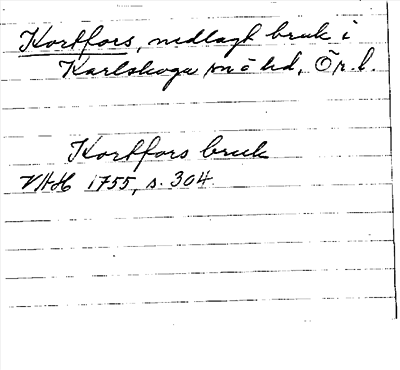 Kortfors, nedlagt bruk i
Karlskoga sn o hd, Ör. l.
Kortfors bruk
VAH 1755, s. 304